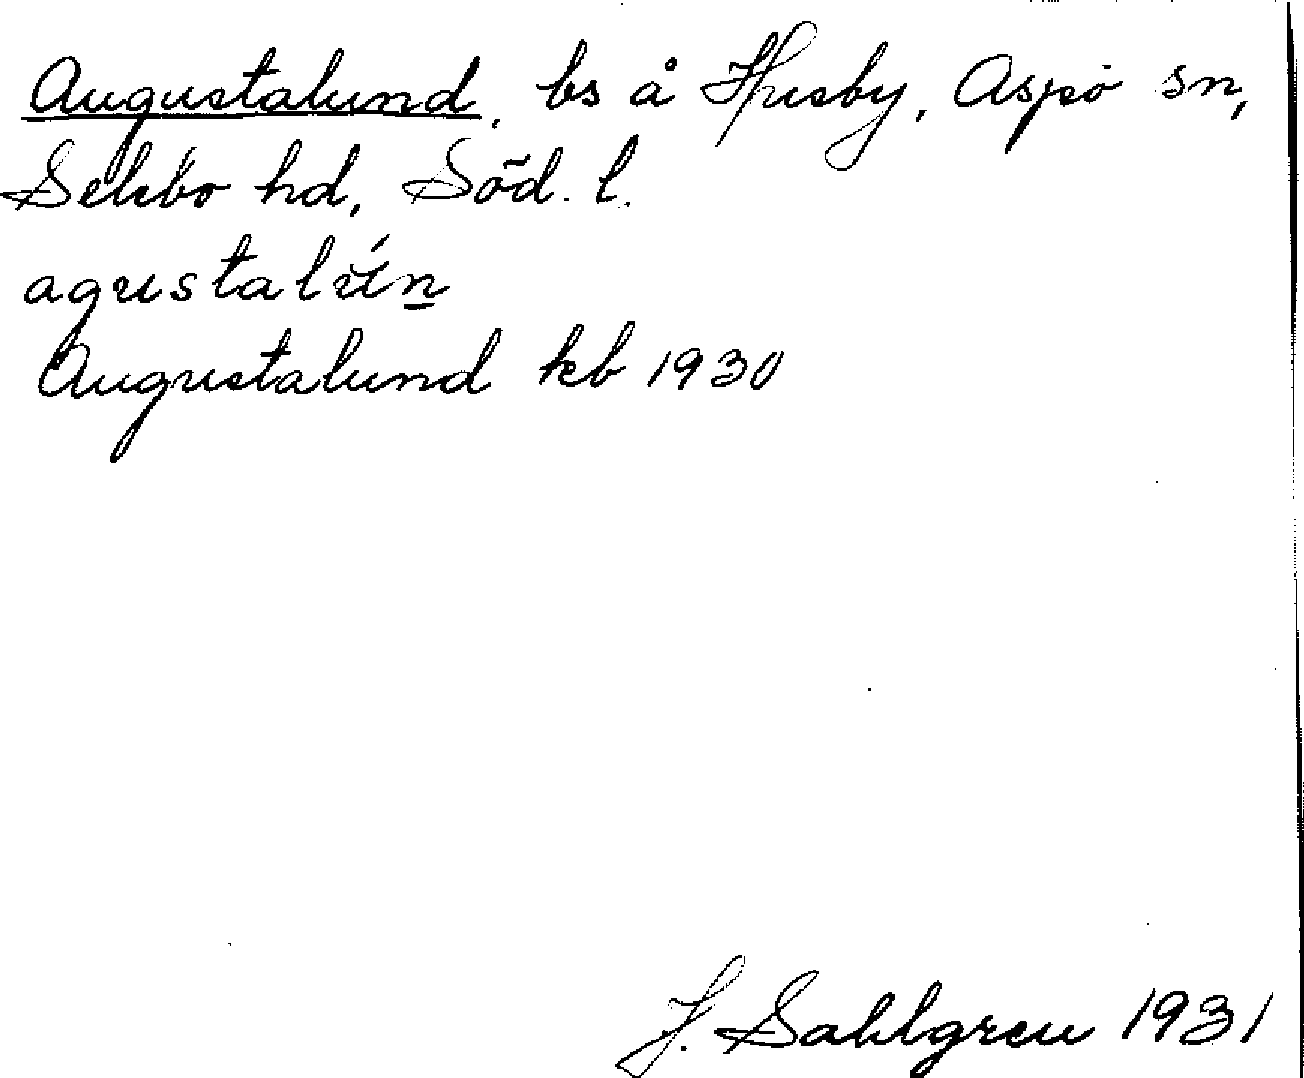 Augustalund, bs å Husby, Aspö sn,
Selebo hd, Söd. l.
agustalún
Augustalund kb 1930
J. Sahlgren 1931